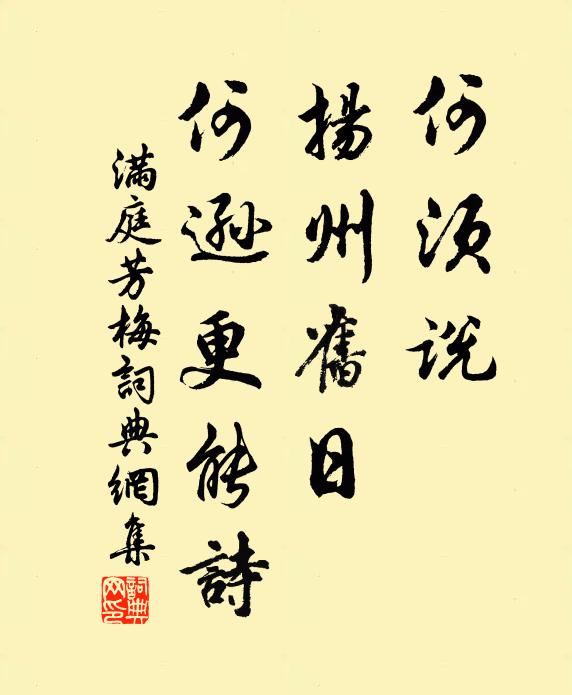 何須說
揚州舊日
何遜更能詩
滿庭芳梅詞典網集
詞典網印